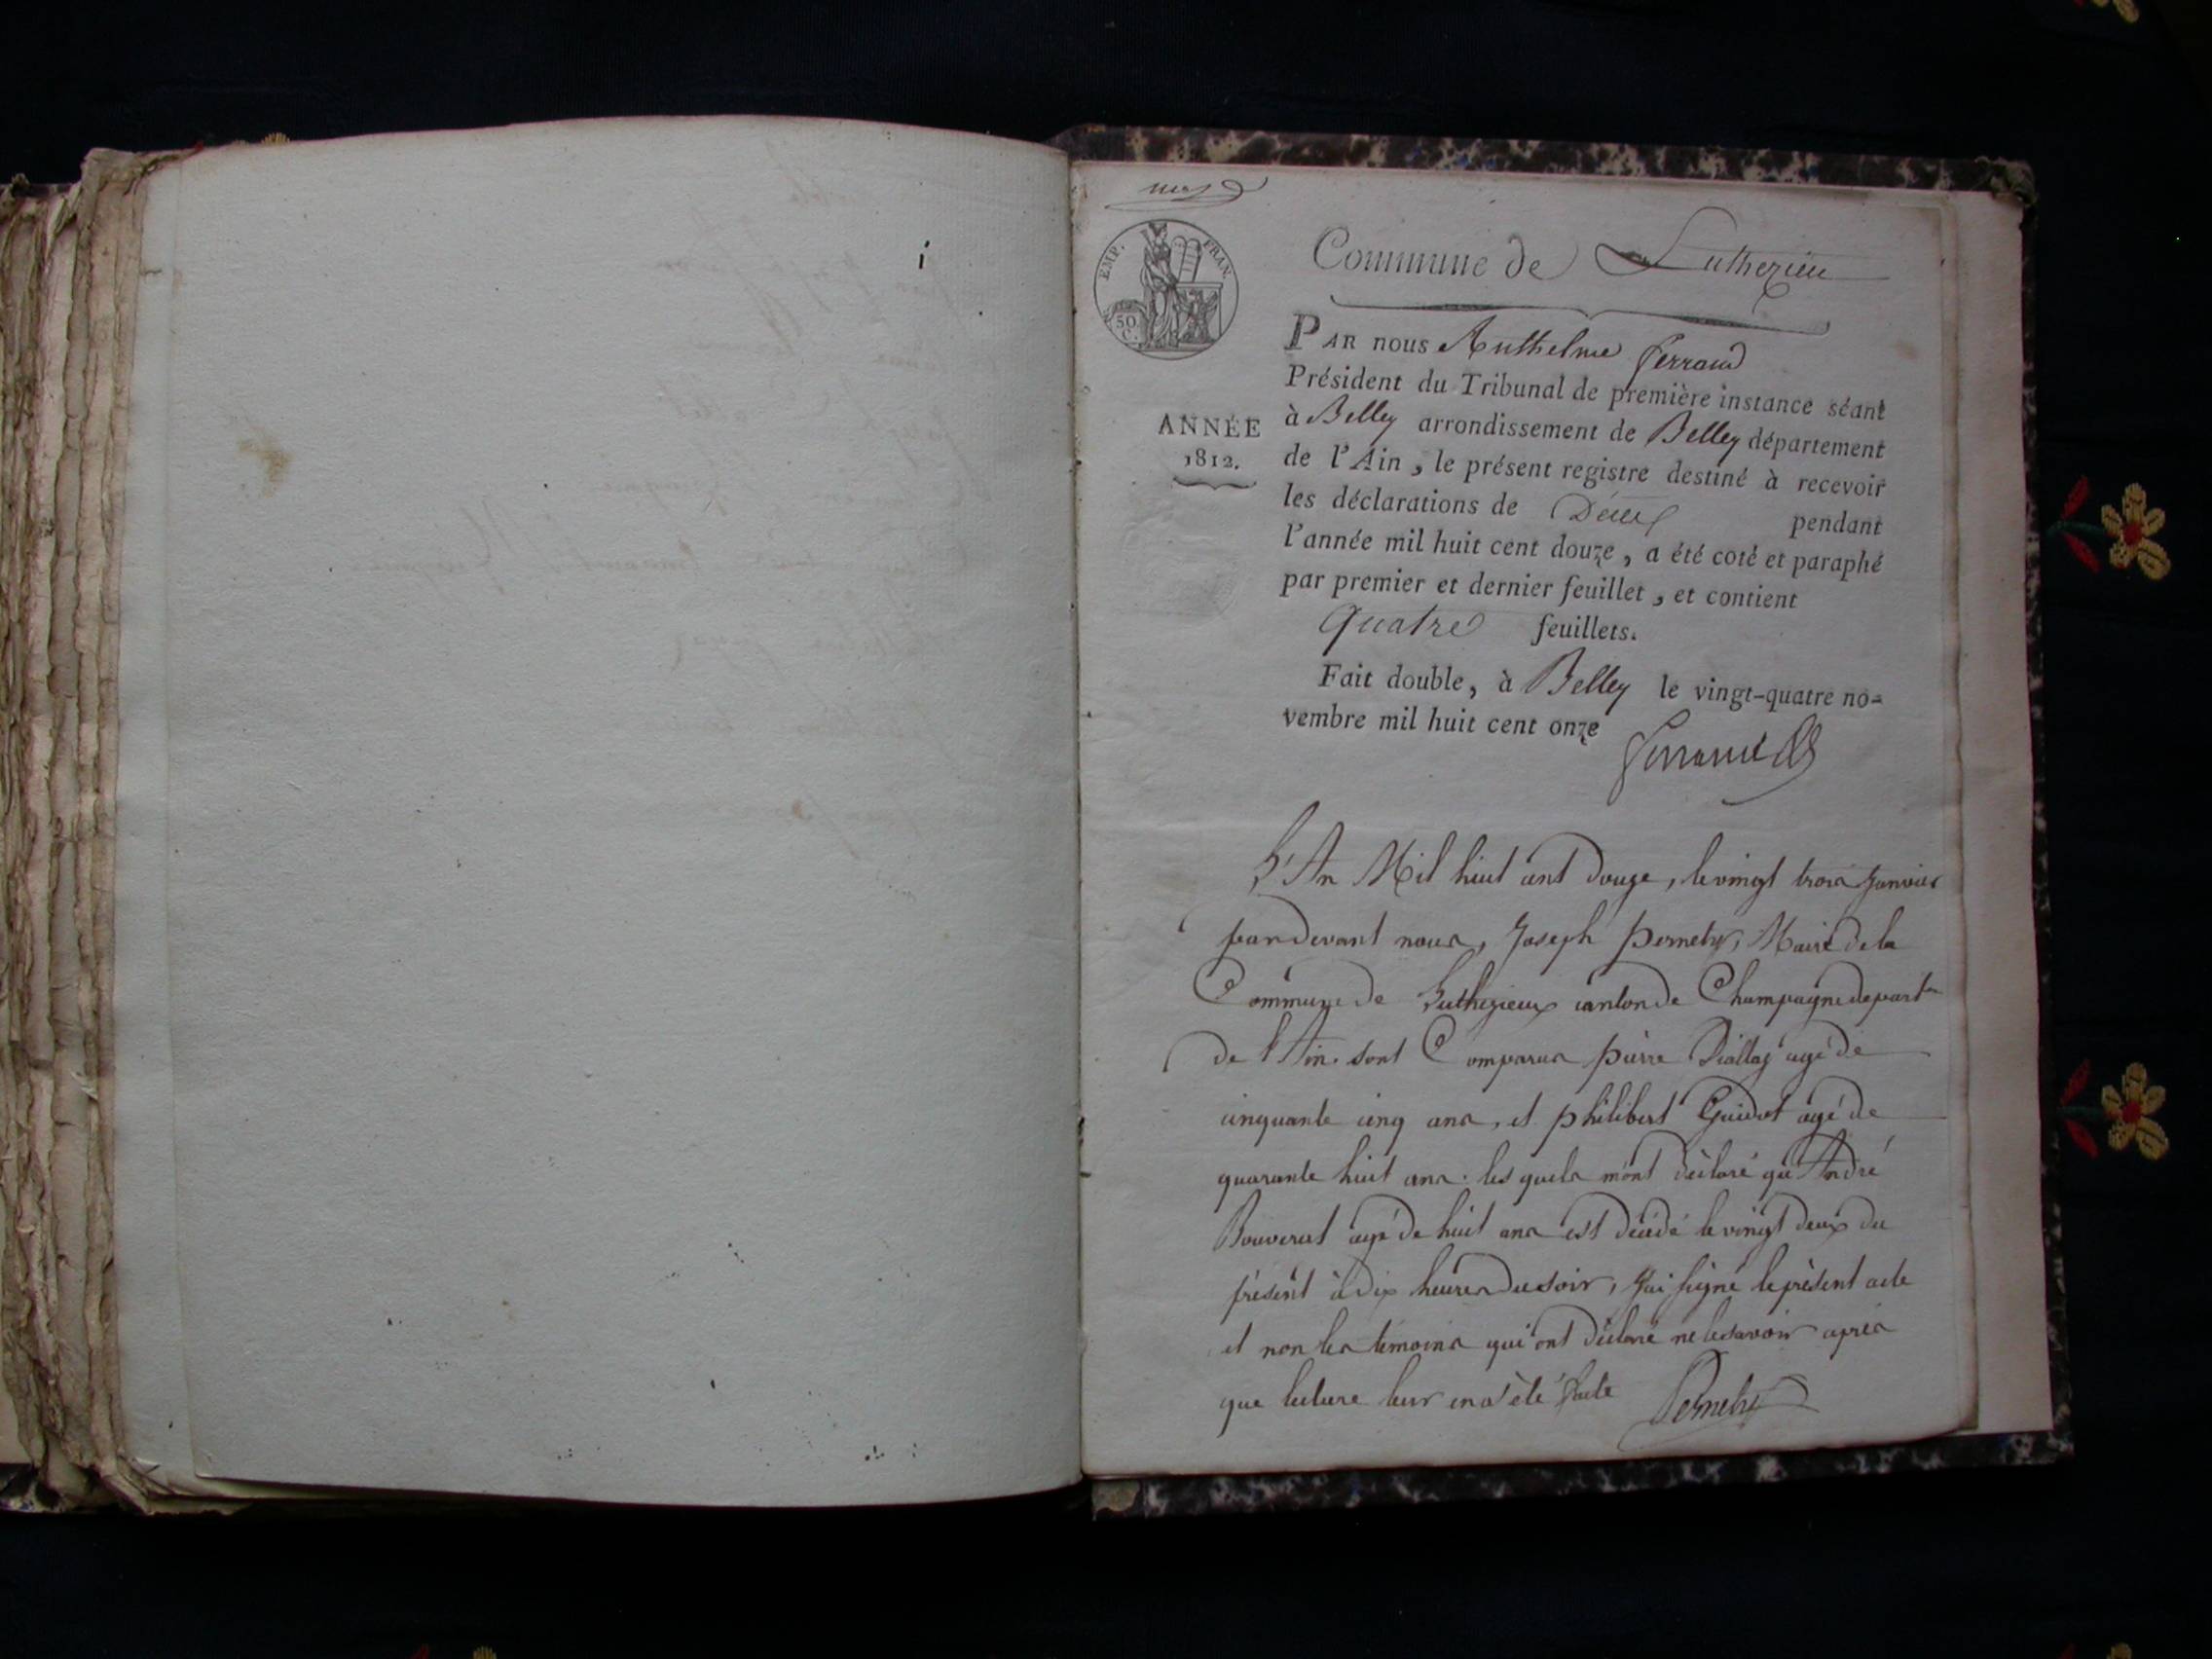 EMP. FRAN.
50 C.
Commune de Luthezieu
PAR nous Anthelme ferrand
Président du Tribunal de première instance séant
à Belley arrondissement de Belley département
ANNÉE
1812.
de l'Ain, le présent registre destiné à recevoir
les déclarations de Décès pendant
l'année mil huit cent douze, a été coté et paraphé
par premier et dernier feuillet, et contient
quatre feuillets.
Fait double, à Belley le vingt-quatre no=
vembre mil huit cent onze
ferrand
L'An Mil huit cent douze, le vingt trois Janvier
par devant nous, Joseph pernety, Maire de la
Commune de Luthezieux canton de Champagne depart.
de l'Ain. sont Comparus pierre agé de
cinquante cinq ans, et philibert Guidot agé de
quarante huit ans. les quels m'ont déclaré qu'André
Bouverat agé de huit ans est décédé le vingt deux du
présent à dix heures du soir, j'ai signé le présent acte
et non les témoins qui ont déclaré ne le savoir après
que lecture leur en a été faite Pernety